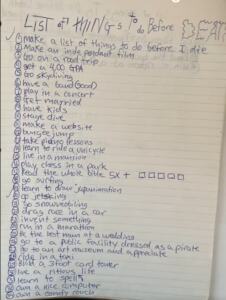 LIST of THINGS to do Before DEATH
make a list of things to do before I die
Make an independent film
Go on a road trip
get a 4.00 GPA
Go skydiving
have a band (Good)
play in a concert
Get married
have kids
stage dive
make a website
bungee jump
take lessons
learn to ride a unicycle
live in a mansion
play chess in a park
Read the whole bible 5x + □□□□□
go surfing
learn to draw
go jetskiing
go snowmobiling
drag race in a car
invent something
run in a marathon
Be the best man at a wedding
go to a public facility dressed as a pirate
go to an art museum and appreciate
ride in a taxi
Build a 3 foot card tower
live a life
learn to spell
own a nice computer
own a comfy couch